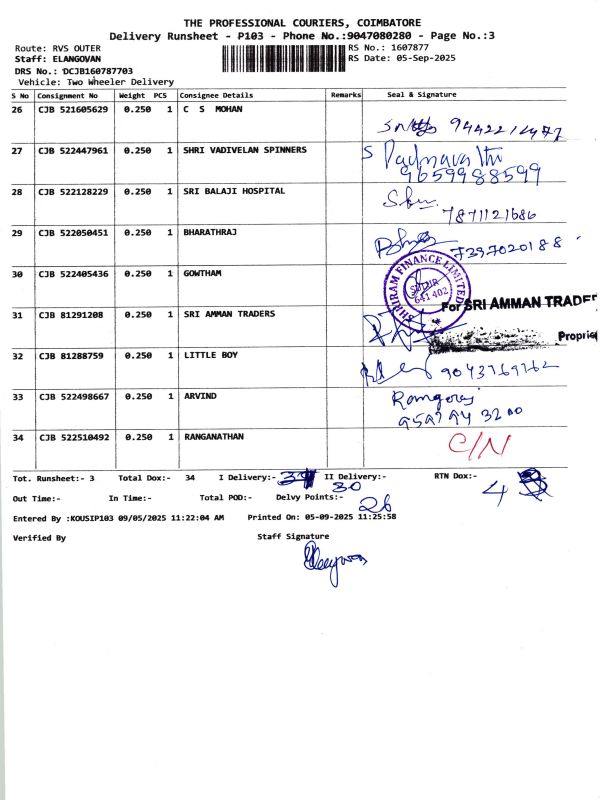 THE PROFESSIONAL COURIERS, COIMBATORE
Delivery Runsheet - P103 - Phone No.:9047080280 - Page No.:3
Route: RVS OUTER
RS No.: 1607877
Staff: ELANGOVAN
RS Date: 05-Sep-2025
DRS No.: DCJB160787703
Vehicle: Two Wheeler Delivery
S No Consignment No Weight PCS Consignee Details Remarks Seal & Signature
26 CJB 521605629 0.250 1 C S MOHAN
27 CJB 522447961 0.250 1 SHRI VADIVELAN SPINNERS
S Padmavathi
9659988599
28 CJB 522128229 0.250 1 SRI BALAJI HOSPITAL
7871121686
29 CJB 522050451 0.250 1 BHARATHRAJ
7397020188
30 CJB 522405436 0.250 1 GOWTHAM
SHRIRAM FINANCE LIMITED
SULUR
641 402
31 CJB 81291208 0.250 1 SRI AMMAN TRADERS
For SRI AMMAN TRADER
Proprie
32 CJB 81288759 0.250 1 LITTLE BOY
33 CJB 522498667 0.250 1 ARVIND
Rangaraj
34 CJB 522510492 0.250 1 RANGANATHAN
C/N
Tot. Runsheet:- 3 Total Dox:- 34 I Delivery:- II Delivery:- RTN Dox:-
30
4
Out Time:- In Time:- Total POD:- Delvy Points:- 26
Entered By :KOUSIP103 09/05/2025 11:22:04 AM Printed On: 05-09-2025 11:25:58
Verified By Staff Signature